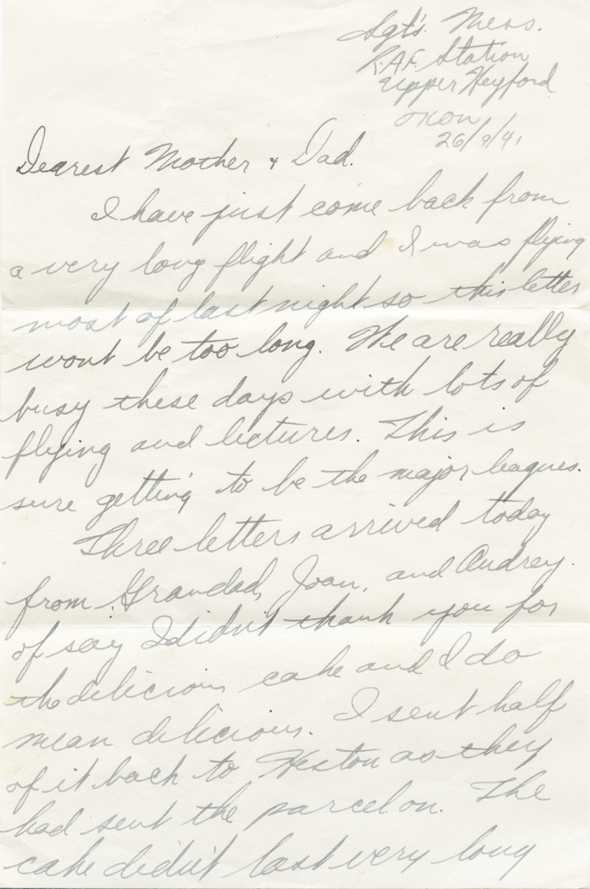 Sgt's. Mess.
R.A.F. Station
Upper Heyford
Oxon
26/9/41
Dearest Mother & Dad.
I have just come back from
a very long flight and I was flying
most of last night so this letter
wont be too long. We are really
busy these days with lots of
flying and lectures. This is
sure getting to be the major leagues.
Three letters arrived today
from Grandad, Joan, and Audrey.
of say I didn't thank you for
the delicious cake and I do
mean delicious. I sent half
of it back to Heston as they
had sent the parcel on. The
cake didn't last very long